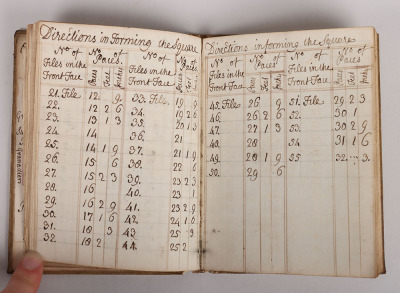 Directions in Forming the Square
No of Files in the Front Face | No of Paces | No of Files in the Front Face | No of Paces
Paces Feet Inches | Paces Feet Inches
21. File 12 . 9 33. File 19 . 9
22. 12 2 6 34. 19 2 6
23. 13 1 3 35. 20 1 3
24. 14 36. 21
25. 14 1 9 37. 21 1 9
26. 15 . 6 38. 22 . 6
27. 15 2 3 39. 22 2 3
28. 16 40. 23 1
29. 16 2 9 41. 23 2 9
30. 17 1 6 42. 24 1 6
31. 18 . 3 43. 25 . 3
32. 18 2 44. 25 2
Directions in forming the Square
No of Files in the Front Face | No of Paces | No of Files in the Front Face | No of Paces
Paces Feet Inches | Paces Feet Inches
45. File 26 . 9 51. File 29 2 3
46. 26 2 6 52. 30 1
47. 27 1 3 53. 30 2 9
48. 28 54. 31 1 6
49. 28 1 9 55. 32 .. 3
50. 29 6